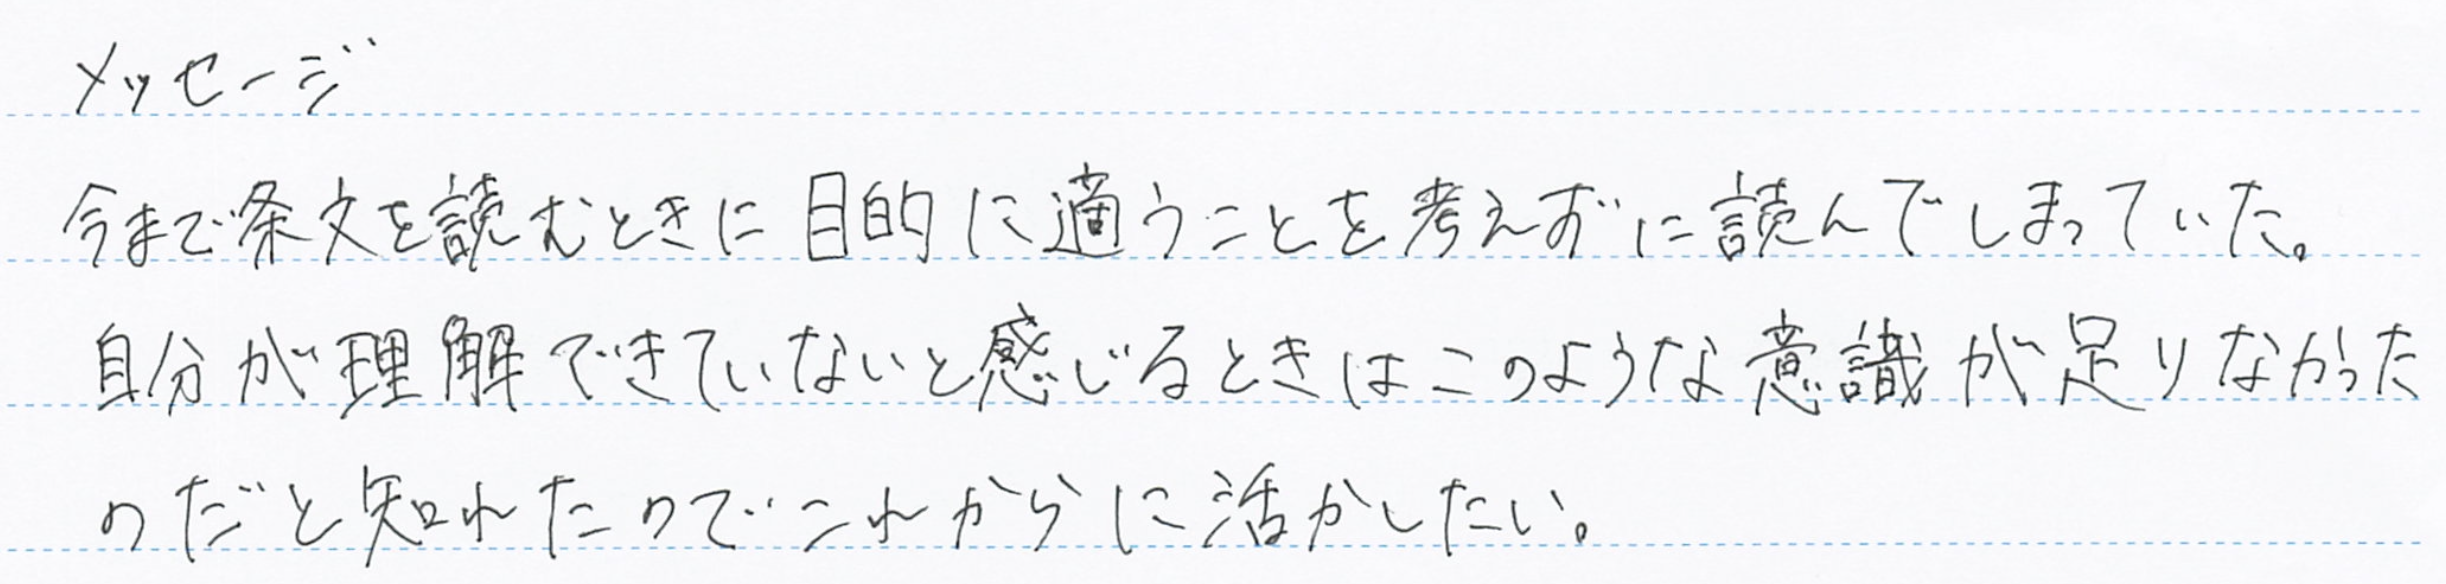 メッセージ
今まで条文を読むときに目的に適うことを考えずに読んでしまっていた。
自分が理解できていないと感じるときはこのような意識が足りなかった
のだと知れたのでこれからに活かしたい。